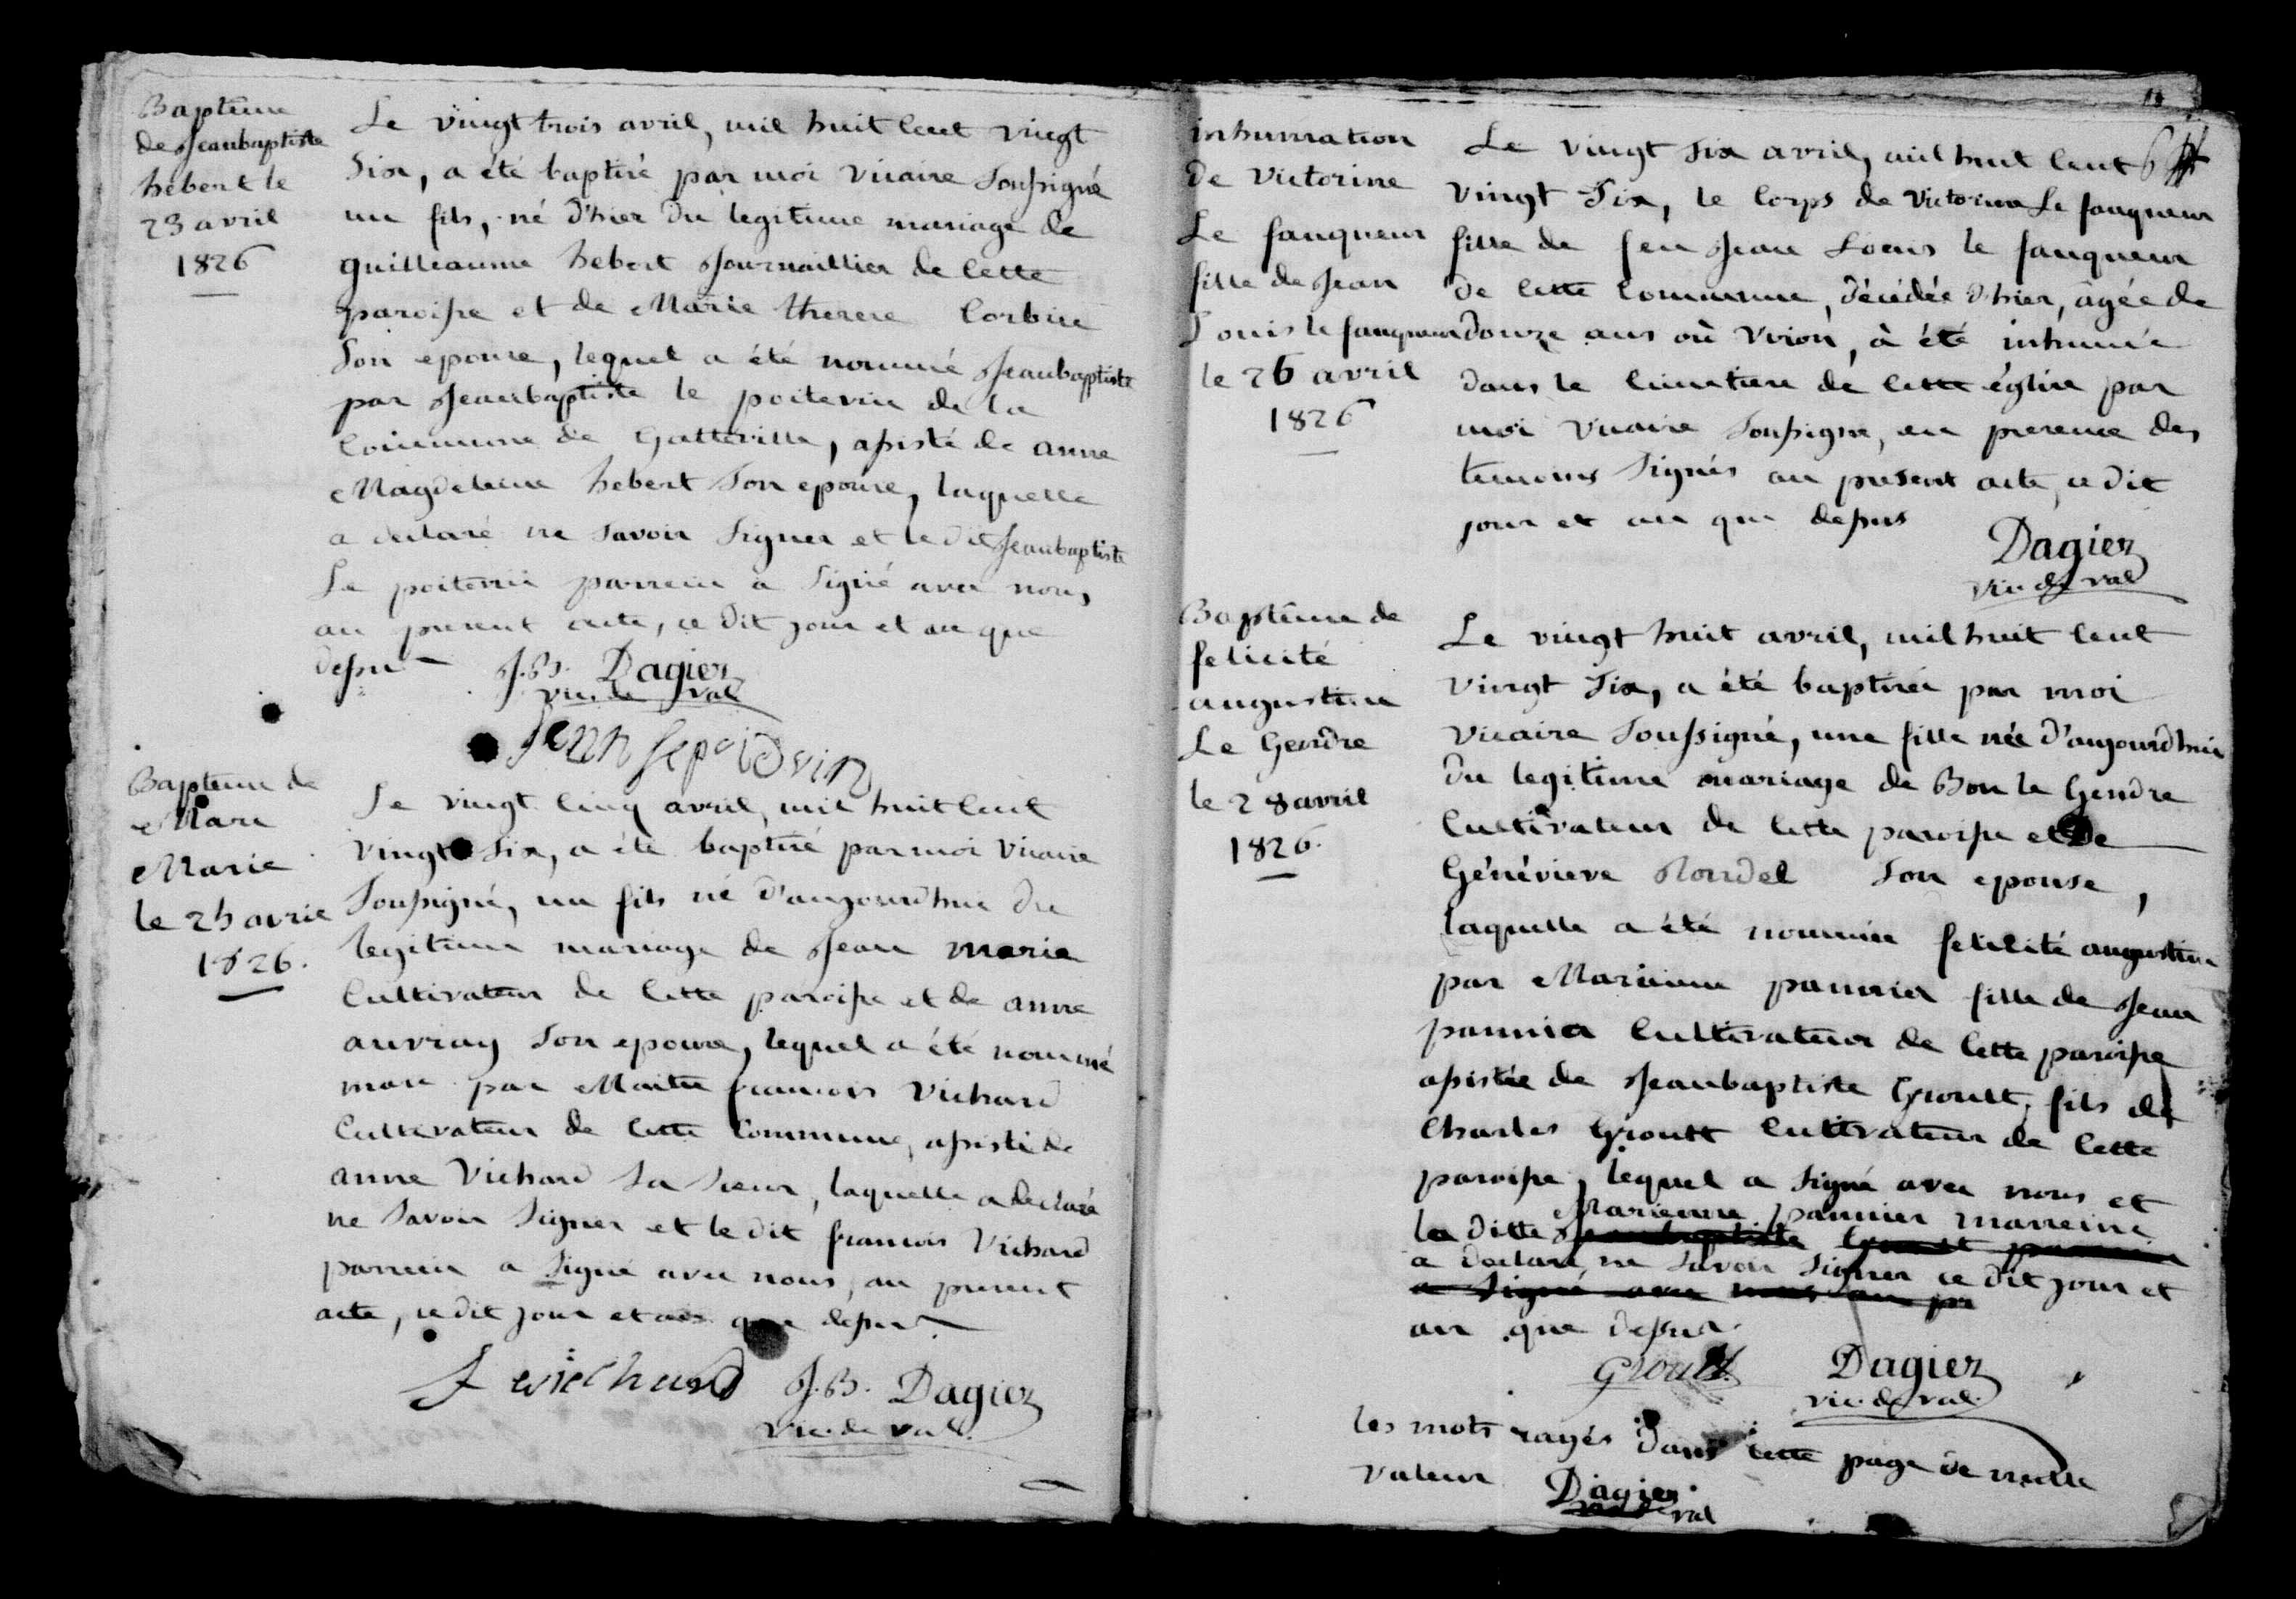 Baptême
de Jeanbaptiste
hebert le
23 avril
1826
Le vingt trois avril, mil huit cent vingt
Six, a été baptisé par moi Vicaire Soussigné
un fils, né d'hier du legitime mariage de
guilleaume hebert Journaillier de cette
paroisse et de Marie therese Corbin
Son epouse, lequel a été nommé Jeanbaptiste
par Jeanbaptiste le poitevin de la
Commune de Gatteville, assisté de anne
Magdeleine hebert Son epouse, laquelle
a declaré ne Savoir Signer et le dit Jeanbaptiste
Le poitevin parrein a Signé avec nous
au present acte, ce dit jour et an que
dessus
J.B. Dagier
vic. de val
Baptême de
Marc
Marie
le 25 avril
1826.
Le vingt cinq avril, mil huit cent
vingt Six, a été baptisé par moi Vicaire
Soussigné, un fils né d'aujourdhui du
legitime mariage de Jean marie
Cultivateur de cette paroisse et de anne
auvray Son epouse, lequel a été nommé
marc par Maitre francois Vichard
Cultivateur de cette Commune, assisté de
anne Vichard Sa Soeur, laquelle a declaré
ne Savoir Signer et le dit francois Vichard
parrein a Signé avec nous, au present
acte, ce dit jour et an que dessus
J.B. Dagier
Vic. de val.
inhumation
de Victorine
Le fauqueur
fille de Jean
Louis le fauqueur
le 26 avril
1826
Le vingt Six avril, mil huit cent
Vingt Six, le Corps de Victorine Le fauqueur
fille de feu Jean Louis le fauqueur
de cette Commune, décédée d'hier, âgée de
douze ans où Viron, à été inhumée
dans le Cimetiere de cette église par
moi Vicaire Soussigné, en presence des
temoins Signés au present acte, ce dit
jour et an que dessus
Dagier
vic. de val
Baptême de
felicité
augustine
Le Gendre
le 28 avril
1826.
Le vingt huit avril, mil huit cent
vingt Six, a été baptisée par moi
Vicaire Soussigné, une fille née d'aujourdhui
du legitime mariage de Bon le Gendre
Cultivateur de cette paroisse et de
Généviève Son epouse,
laquelle a été nommée felicité augustine
par Marienne pannier fille de Jean
pannier Cultivateur de cette paroisse
assistée de Jeanbaptiste Groult, fils de
Charles Groult Cultivateur de cette
paroisse, lequel a Signé avec nous et
Marienne pannier marreine
la ditte Jeanbaptiste Groult parrein
a declaré ne Savoir Signer ce dit jour et
a Signé avec nous au pr
an que dessus.
Groult Dagier
vic. de val.
les mots rayés dans cette page de nulle
valeur Dagier
val